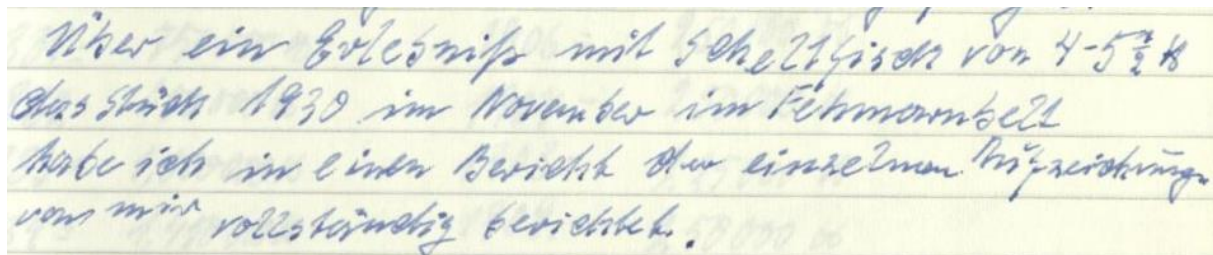 Über ein Erlebniß mit Schellfisch von 4-5 ½ ℔
das Stück 1930 im November im Fehmarnbelt
habe ich in einen Bericht der einzelnen Aufzeichnunge
von mir vollständig berichtet.